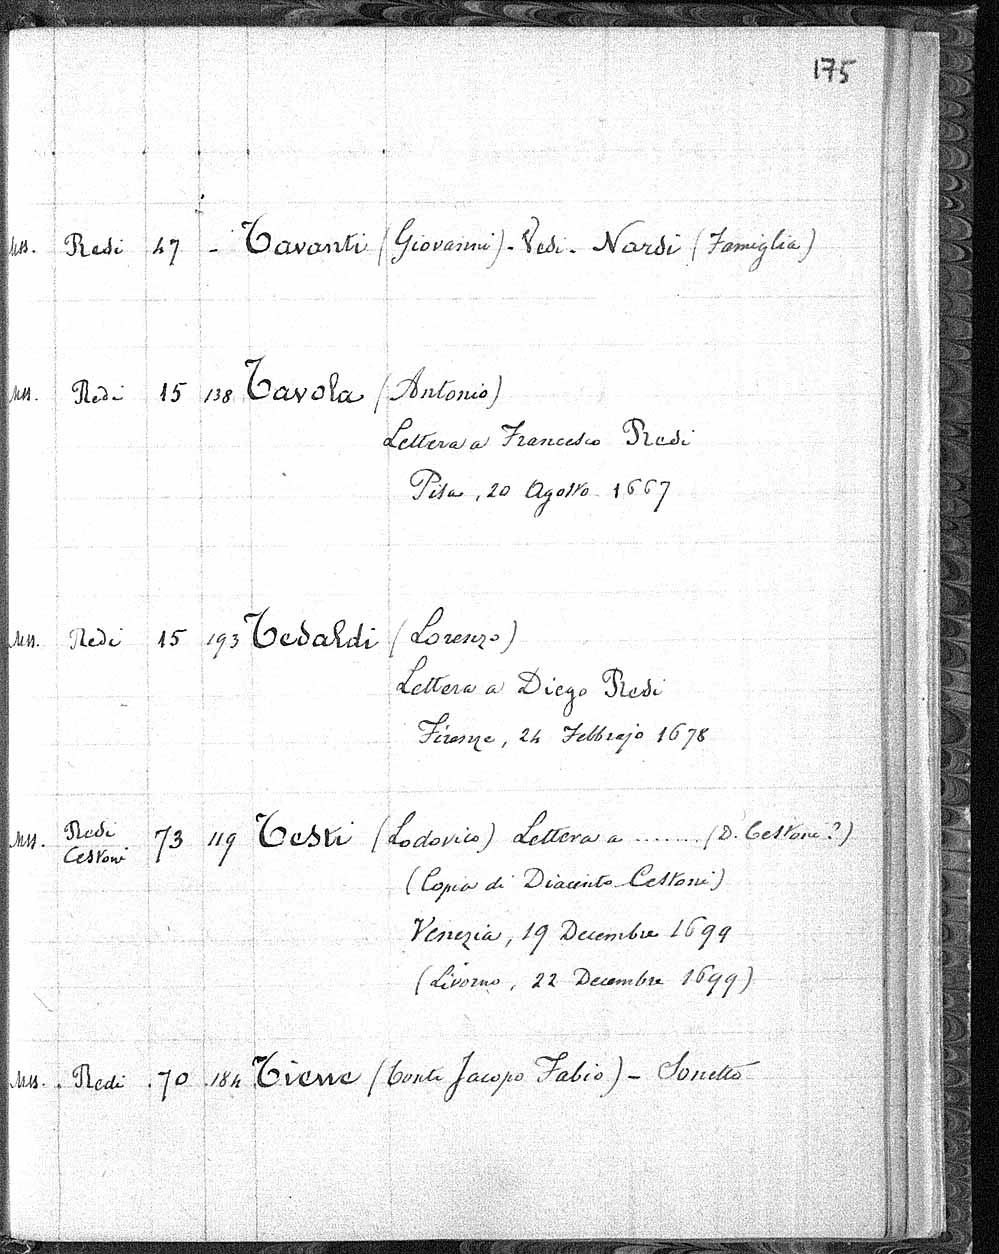 175
Mss. Redi 47 - Tavanti (Giovanni) - Vedi - Nardi (Famiglia)
Mss. Redi 15 138 Tavola (Antonio)
Lettera a Francesco Redi
Pisa, 20 Agosto 1667
Mss. Redi 15 193 Tedaldi (Lorenzo)
Lettera a Diego Redi
Firenze, 24 Febbrajo 1678
Mss. Redi Cestoni 73 119 Testi (Lodovico) Lettera a ....... (D. Cestoni?)
(Copia di Diacinto Cestoni)
Venezia, 19 Decembre 1699
(Livorno, 22 Decembre 1699)
Mss. Redi 70 184 Tiene (Conte Jacopo Fabio) - Sonetto